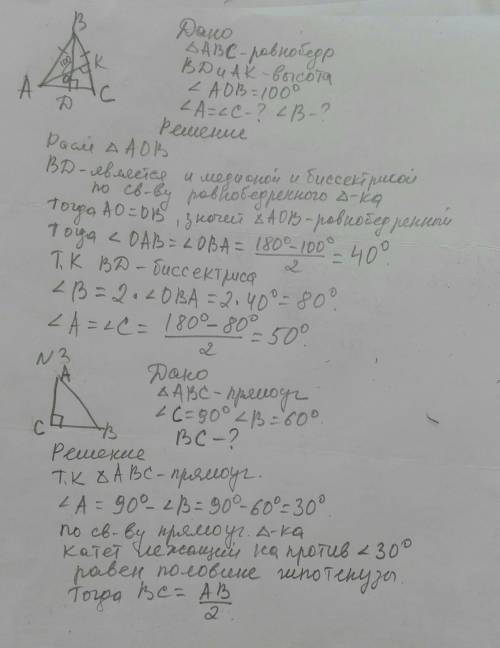 B
A
100
K
D
C
Дано
△ABC-равнобедр
BD и AK-высота
∠AOB=100°
∠A=∠C-? ∠B-?
Решение
Расм △AOB
BD-является и медионой и биссектрисой
по св-ву равнобедренного △-ка
Тогда AO=OB, значит △AOB-равнобедренной
Тогда ∠OAB=∠OBA= (180°-100°)/2 = 40°.
Т.К BD-биссектриса
∠B=2·∠OBA=2·40°=80°
∠A=∠C= (180°-80°)/2 = 50°.
N 3
A
C
B
Дано
△ABC-прямоуг
∠C=90° ∠B=60°.
BC-?
Решение
Т.К △ABC-прямоуг.
∠A=90°-∠B=90°-60°=30°.
по св-ву прямоуг. △-ка
катет лежащий на против ∠30°
равен половине гипотенузы.
Тогда BC= AB/2.